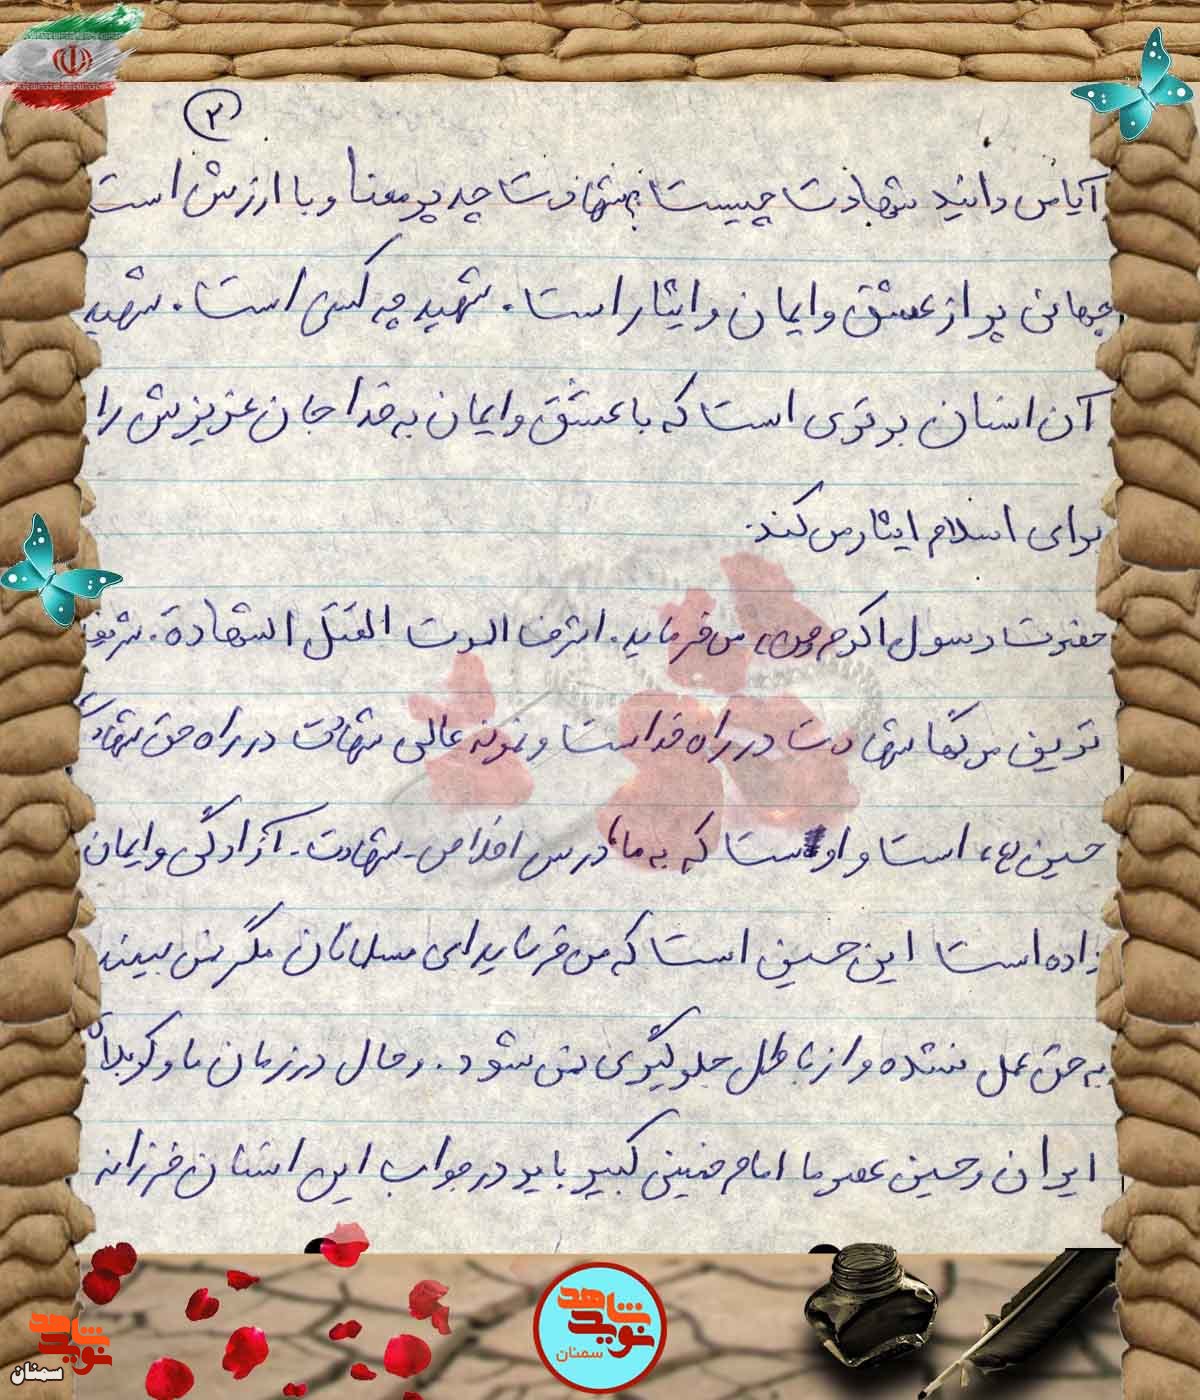 ۲
آیا می دانید شهادت چیست؟ شهادت چه پر معنا و با ارزش است
جهانی پر از عشق و ایمان و ایثار است. شهید چه کسی است. شهید
آن انسان برتری است که با عشق و ایمان به خدا جان عزیزش را
برای اسلام ایثار می کند.
حضرت رسول اکرم (ص) می فرماید. اشرف الموت القتل الشهادة. شریف
ترین مرگها شهادت در راه خداست و نمونه عالی شهادت در راه حق شهادت
حسین (ع) است و اوست که به ما درس اخلاص - شهادت - آزادگی و ایمان
داده است این حسین است که می فرماید ای مسلمانان مگر نمی بینید
به حق عمل نشده و از باطل جلوگیری نمی شود. و حال در زمان ما و کربلای
ایران و حسین عصر ما امام خمینی کبیر باید در جواب این انسان فرزانه
نوید شاهد
سمنان
نوید شاهد
سمنان